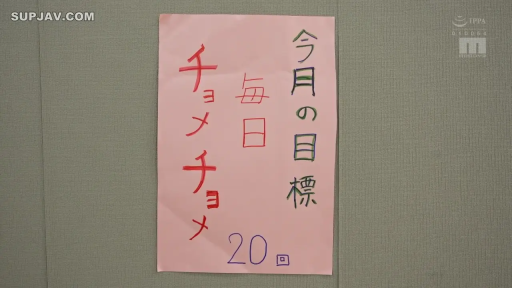 SUPJAV.COM
IPPA
今月の目標
毎日
チョメチョメ
20回